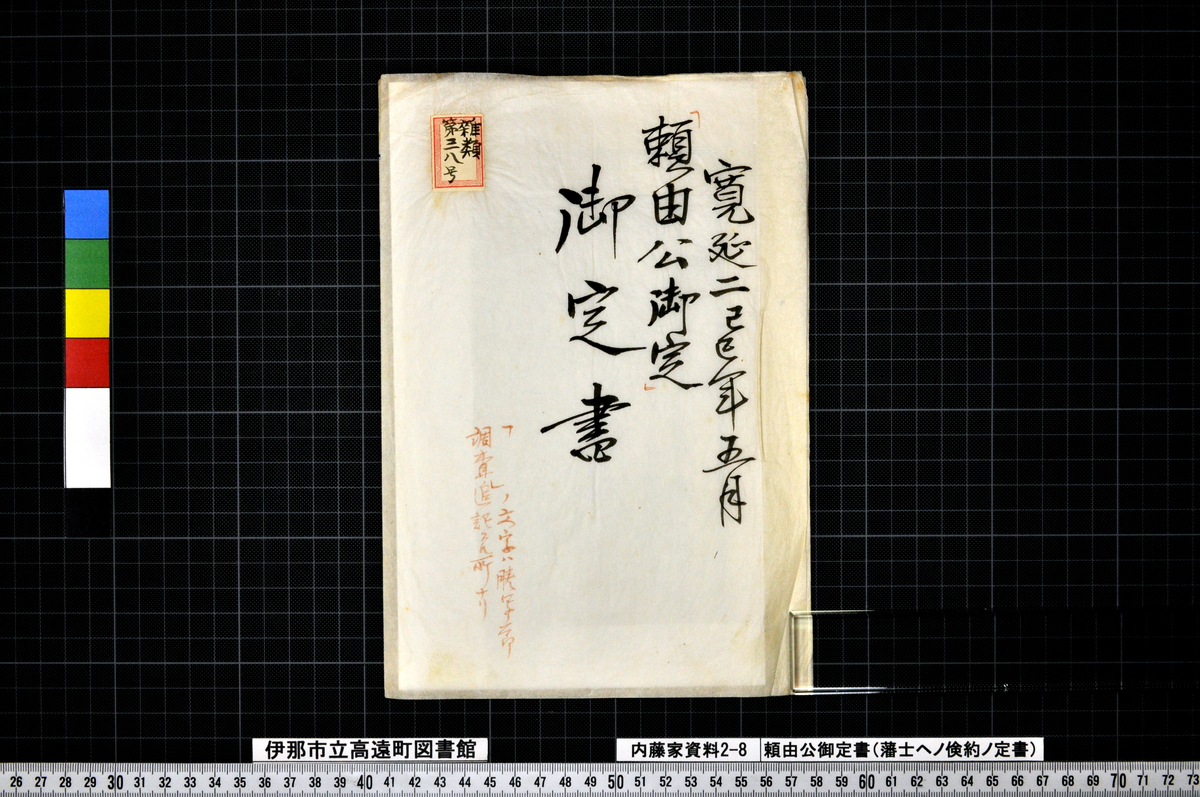 寛延二己巳年五月
「頼由公御定」
御定書
雑類
第三八号
「」ノ文字ハ謄写ノ節
調査追記スル所ナリ
伊那市立高遠町図書館
内藤家資料2-8
頼由公御定書(藩士ヘノ倹約ノ定書)
26 27 28 29 30 31 32 33 34 35 36 37 38 39 40 41 42 43 44 45 46 47 48 49 50 51 52 53 54 55 56 57 58 59 60 61 62 63 64 65 66 67 68 69 70 71 72 73